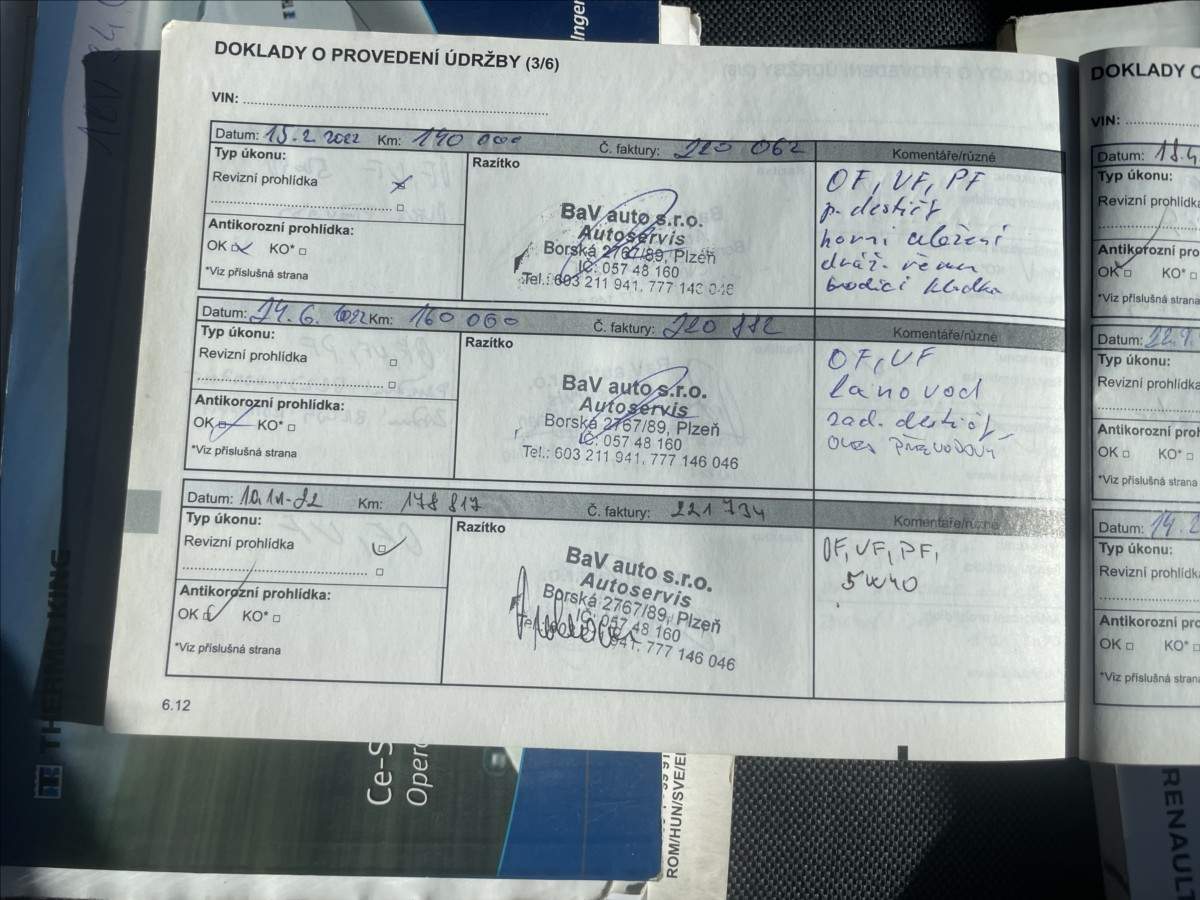 DOKLADY O PROVEDENÍ ÚDRŽBY (3/6)
VIN:
Datum: 15.2.2022 Km: 140 000 Č. faktury: 220 062 Komentáře/různé
Typ úkonu:
Revizní prohlídka
Antikorozní prohlídka:
OK KO*
*Viz příslušná strana
Razítko
BaV auto s.r.o.
Autoservis
Borská 2767/89, Plzeň
IČ: 057 48 160
Tel.: 603 211 941, 777 146 046
OF, VF, PF
p. destičk
horní uložení
dráž. řemen
vodící kladka
Datum: 24.6.2022 Km: 160 000 Č. faktury: 220 882 Komentáře/různé
Typ úkonu:
Revizní prohlídka
Antikorozní prohlídka:
OK KO*
*Viz příslušná strana
Razítko
BaV auto s.r.o.
Autoservis
Borská 2767/89, Plzeň
IČ: 057 48 160
Tel.: 603 211 941, 777 146 046
OF, VF
lanovod
zad. destičk
OLEJ PŘEVODOVÝ
Datum: Km: 178 817 Č. faktury: 221 734 Komentáře/různé
Typ úkonu:
Revizní prohlídka
Antikorozní prohlídka:
OK KO*
*Viz příslušná strana
Razítko
BaV auto s.r.o.
Autoservis
Borská 2767/89, Plzeň
IČ: 057 48 160
941, 777 146 046
OF, VF, PF,
5W40
6.12
DOKLADY O
VIN:
Datum:
Typ úkonu:
Revizní prohlíd
Antikorozní pro
OK KO*
*Viz příslušná strana
Datum:
Typ úkonu:
Revizní prohlíd
Antikorozní prohl
OK KO*
*Viz příslušná stran
Datum:
Typ úkonu:
Revizní prohlíd
Antikorozní pro
OK KO*
*Viz příslušná stra
THERMO KING
Ce-S
Opera
ROM/HUN/SVE/E
RENAULT
Inger